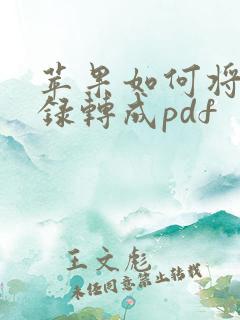 苹果如何将
录转成pdf
王文彪
未经同意禁止转载